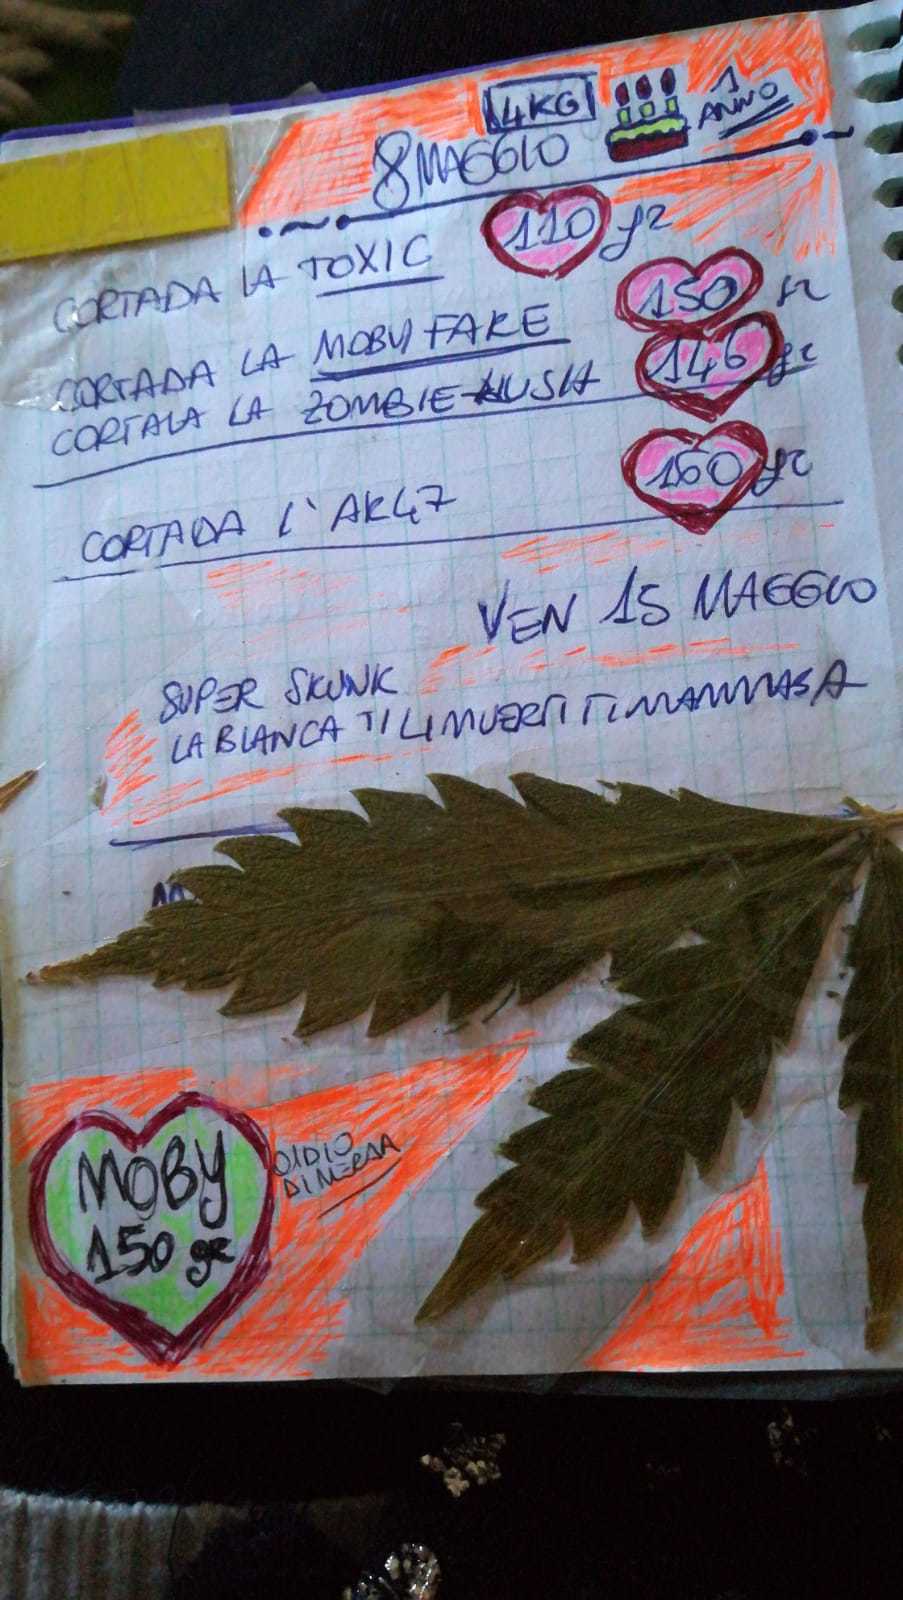 4KG
8 MAGGIO
1 ANNO
CORTADA LA TOXIC 110 gr
CORTADA LA MOBY FAKE 150 gr
CORTALA LA ZOMBIE KUSH 146 gr
CORTADA L'AK47 160 gr
VEN 15 MAGGIO
SUPER SKUNK
LA BIANCA TI LI MUERTI TI MAMMASA
MOBY
150 gr
OIDIO
DI MERDA